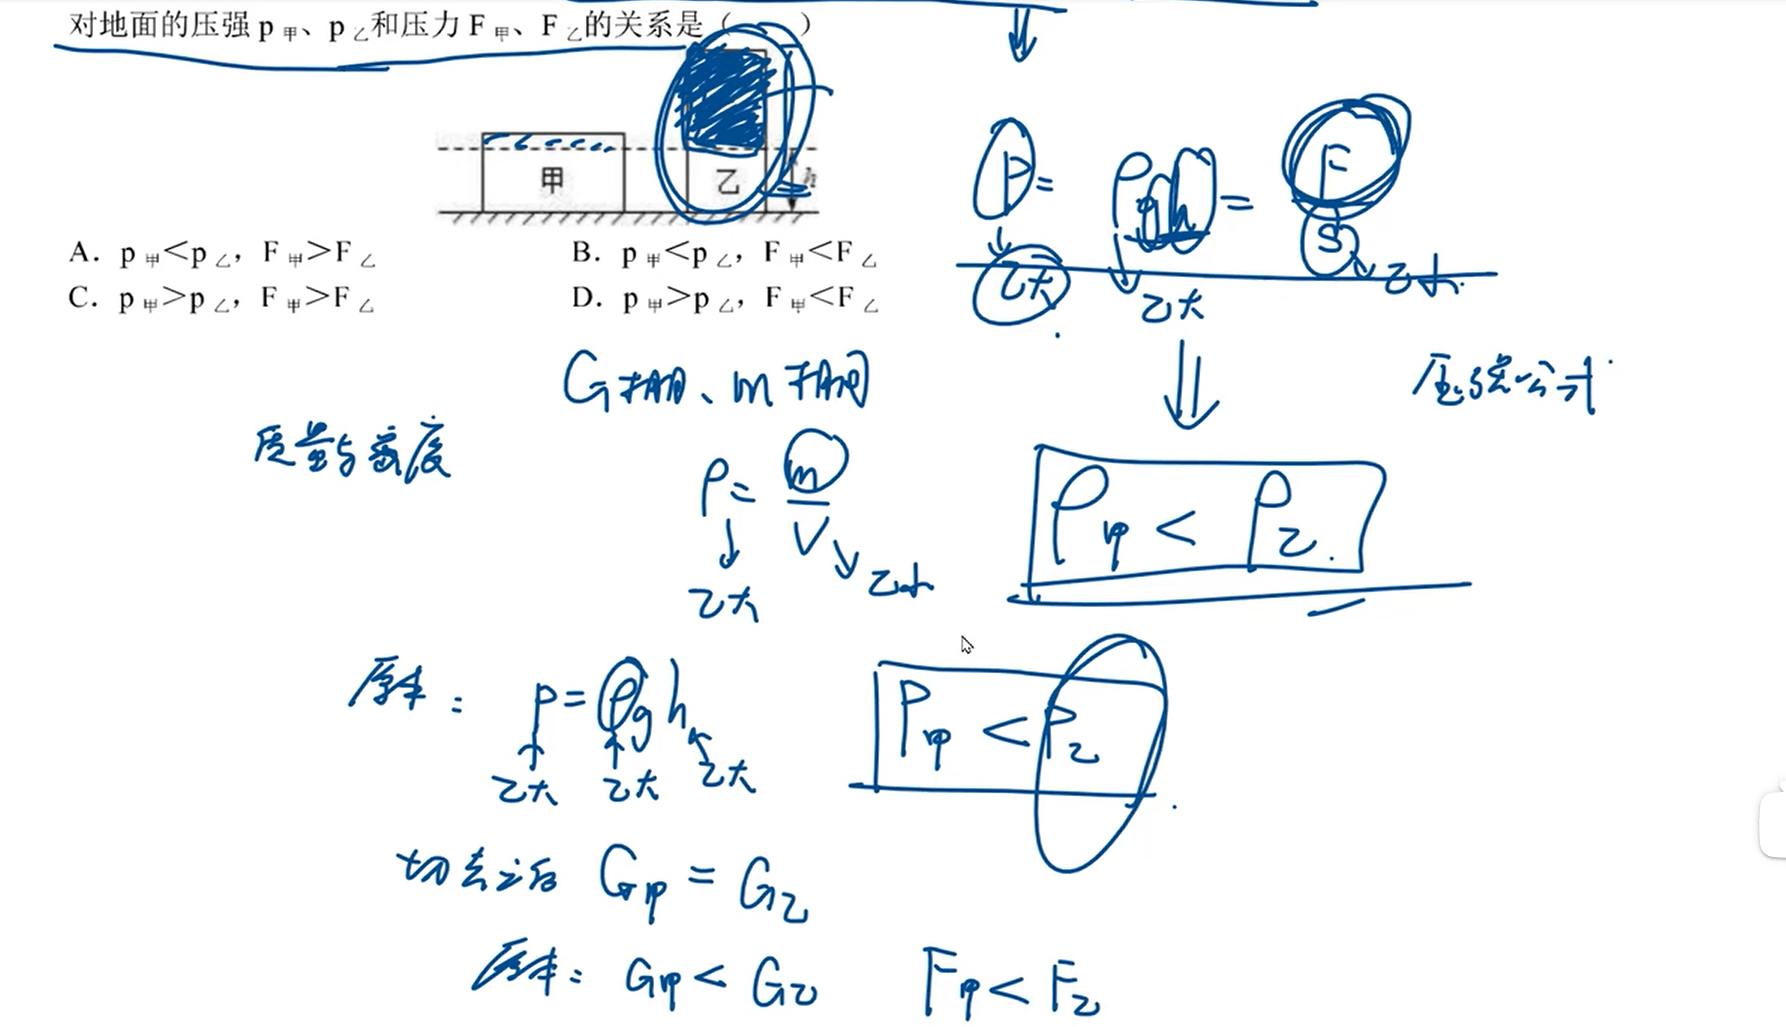 对地面的压强 p 甲、p 乙和压力 F 甲、F 乙的关系是（ ）
甲 乙 h
A. p 甲<p 乙，F 甲>F 乙 B. p 甲<p 乙，F 甲<F 乙
C. p 甲>p 乙，F 甲>F 乙 D. p 甲>p 乙，F 甲<F 乙
p = ρgh = F/S
乙大 乙大 乙小
G相同、m相同
压强公式
质量与密度
ρ = m/V
乙大 乙小
ρ甲 < ρ乙
原本： p = ρgh
乙大 乙大 乙大
P甲 < P乙
切去之后 G甲 = G乙
原本： G甲 < G乙 F甲 < F乙